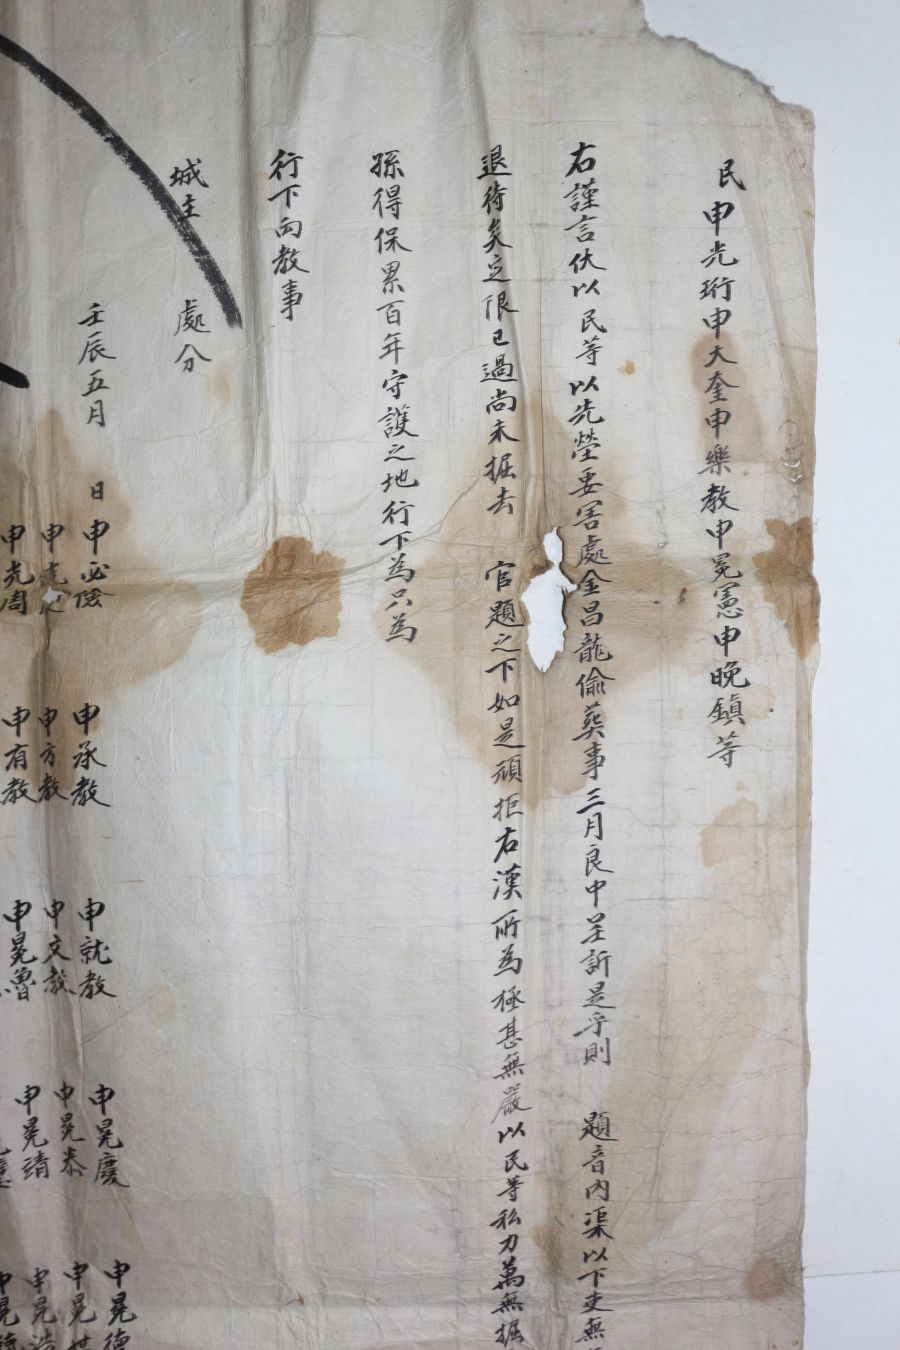 民申光珩申大奎申樂教申冕憲申晚鎭等
右謹言伏以民等以先塋要害處金昌龍偷葬事三月良中呈訴是乎則 題音內渠以下吏無
退待矣定限已過尚未掘去 官題之下如是頑拒右漢所為極甚無嚴以民等私力萬無掘
孫得保累百年守護之地行下為只為
行下向教事
城主 處分
壬辰五月 日申必 申承教 申就教 申冕慶 申冕德
申 申方教 申文教 申冕泰 申冕
申光周 申有教 申冕魯 申冕靖 申冕浩
申冕